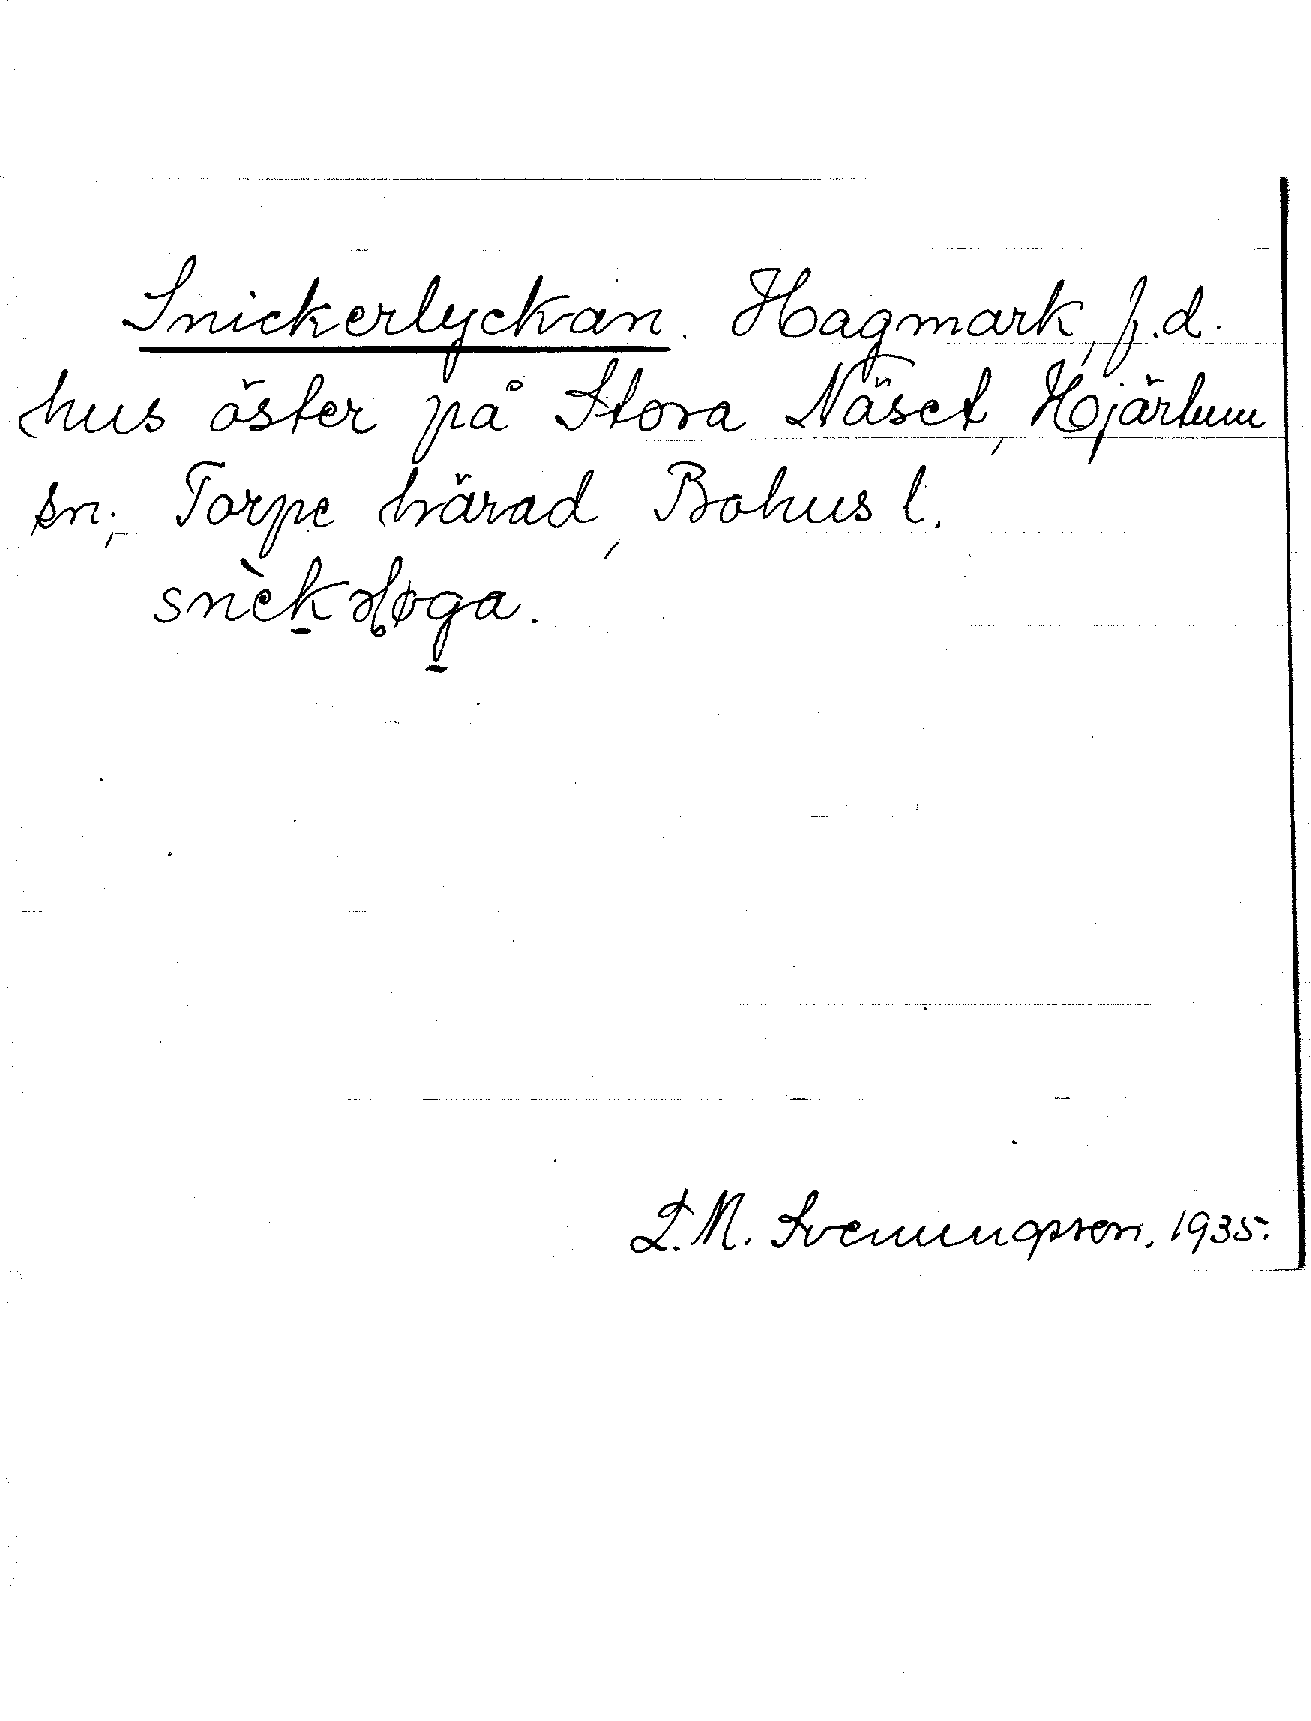 Snickerlyckan. Hagmark, f.d.
hus öster på Stora Näset, Hjärtum
sn, Torpe härad, Bohus l.
L.M. Svenungsson, 1935.